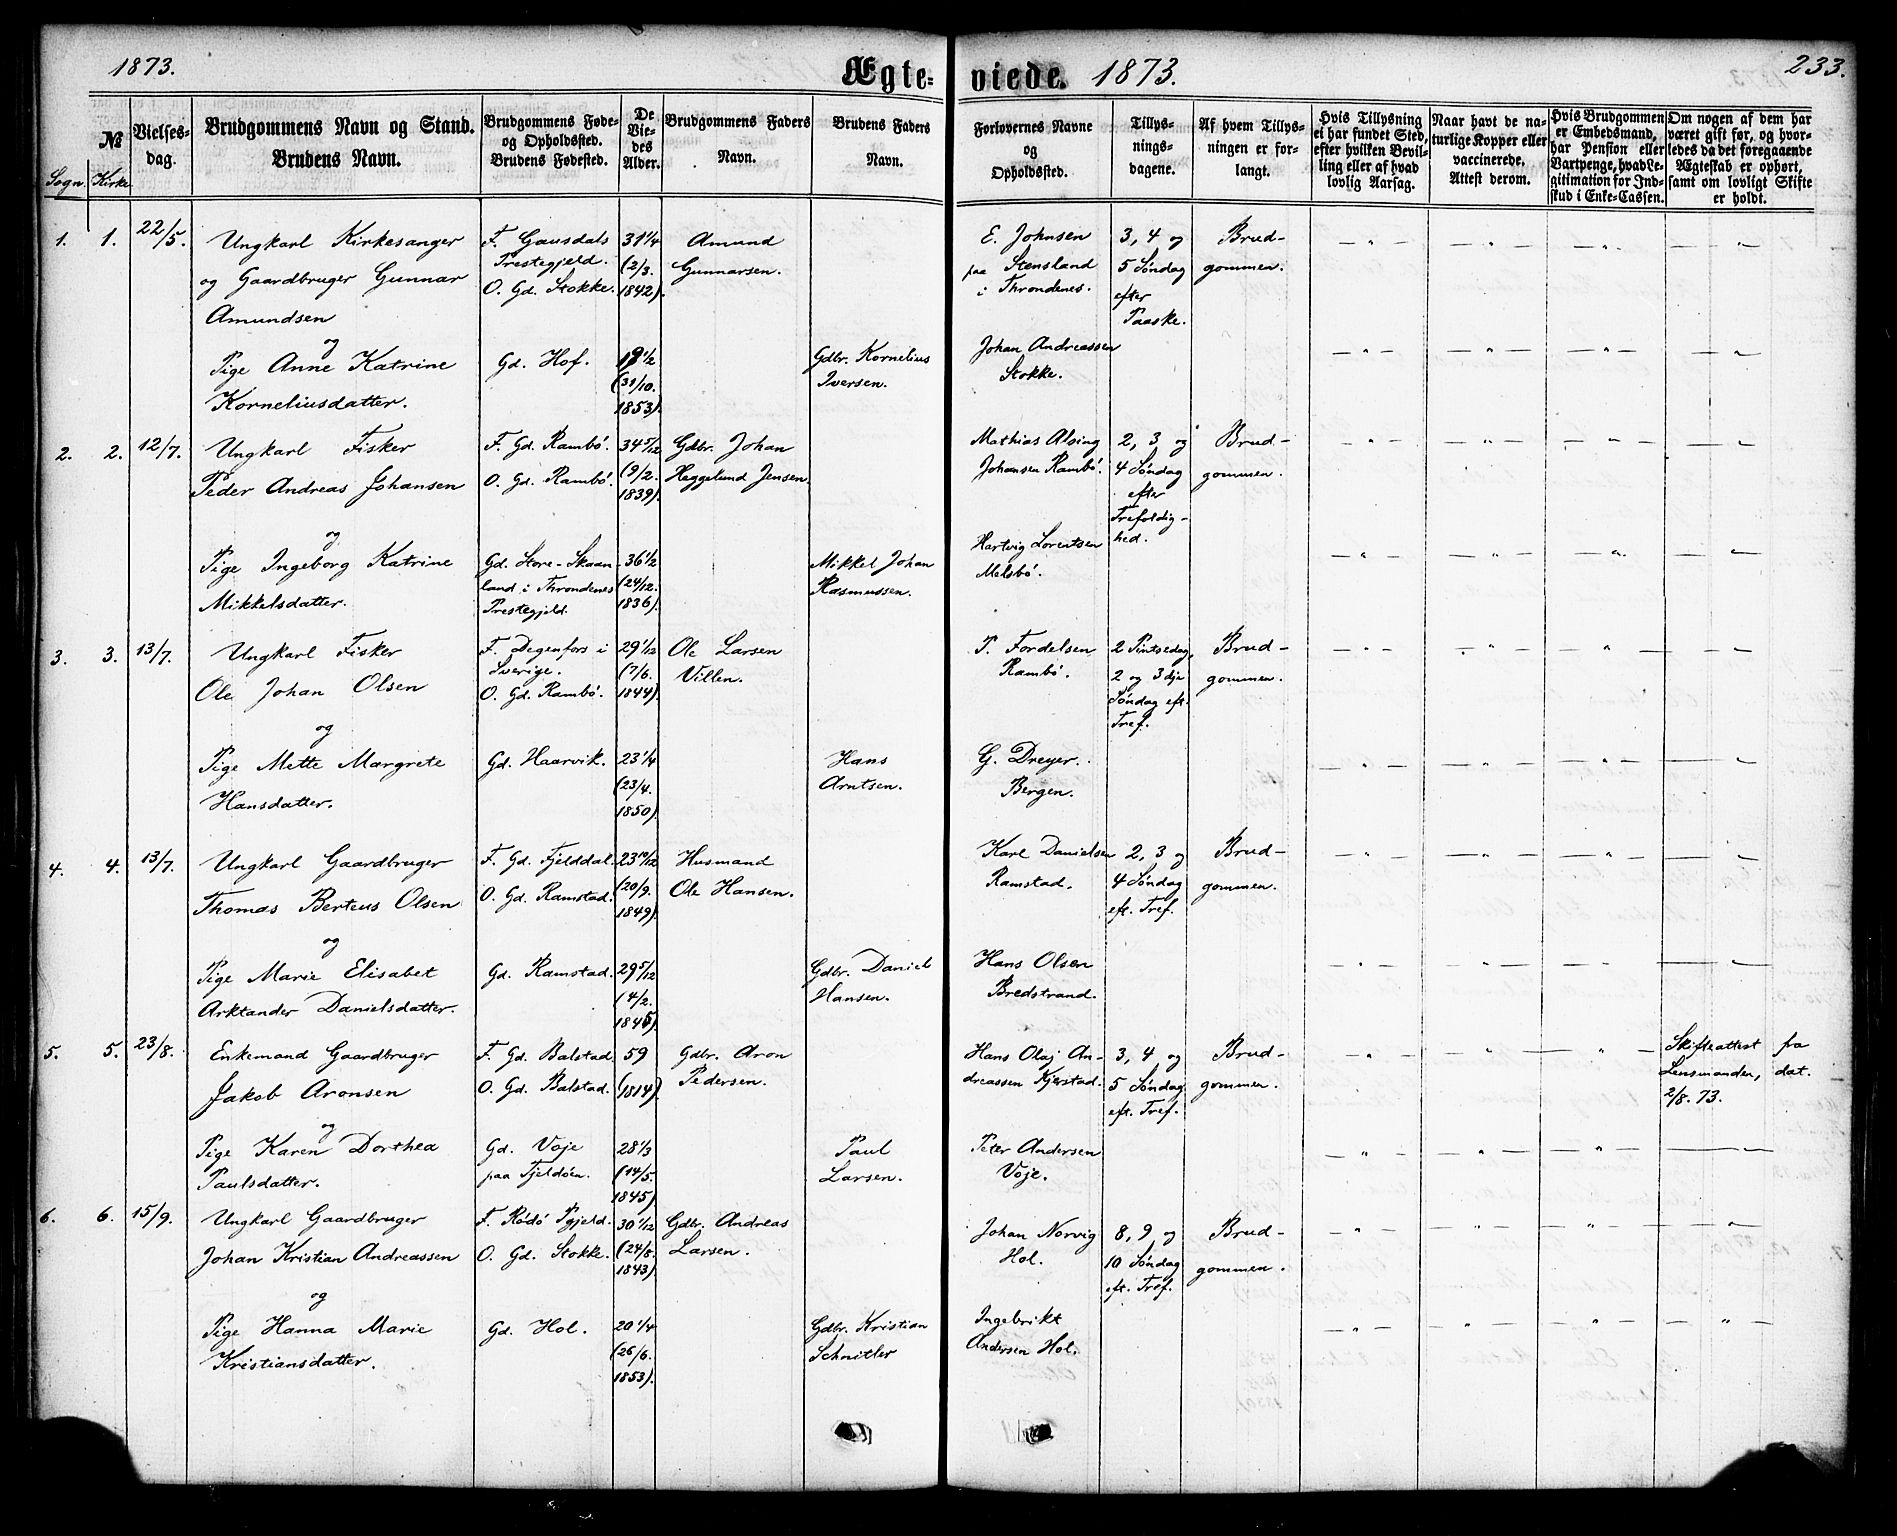 1873.
Ægte-
viede. 1873.
233.
№
Sogn. Kirke.
Vielses-
dag.
Brudgommens Navn og Stand.
Brudens Navn.
Brudgommens Føde-
og Opholdssted.
Brudens Fødested.
De
Vie-
des
Alder.
Brudgommens Faders
Navn.
Brudens Faders
Navn.
Forlovernes Navne
og
Opholdssted.
Tillys-
nings-
dagene.
Af hvem Tillys-
ningen er for-
langt.
Hvis Tillysning
ei har fundet Sted,
efter hvilken Bevil-
ling eller af hvad
lovlig Aarsag.
Naar havt de na-
turlige Kopper eller
vaccinerede.
Attest derom.
Hvis Brudgommen
er Embedsmand,
har Pension eller
Vartpenge, hvad Le-
gitimation for Ind-
skud i Enke-Cassen.
Om nogen af dem har
været gift før, og hvor-
ledes da det foregaaende
Ægteskab er ophørt,
samt om lovligt Skifte
er holdt.
1. 1. 22/5.
Ungkarl Kirkesanger
og Gaardbruger Gunnar
Amundsen
F. Gausdals
Prestegjeld.
O. Gd. Stokke.
31 1/4
(2/3.
1842).
Amund
Gunnarsen.
E. Johnsen
paa Stensland
i Throndenes.
3, 4 og
5 Søndag
efter
Paaske.
Brud-
gommen.
og
Pige Anne Katrine
Korneliusdatter.
Gd. Hof.
19 1/2
(31/10.
1853).
Gdbr. Kornelius
Iversen.
Johan Andreassen
Stokke.
2. 2. 12/7.
Ungkarl Fisker
Peder Andreas Johansen
F. Gd. Rambö.
O. Gd. Rambö.
34 5/12
(9/2.
1839).
Gdbr. Johan
Heggelund Jensen.
Mathias Alving
Johansen Rambö.
2, 3 og
4 Søndag
efter
Trefoldig-
hed.
Brud-
gommen.
og
Pige Ingeborg Katrine
Mikkelsdatter.
Gd. Store-Skaan-
land i Throndenes
Prestegjeld.
36 1/2
(24/12.
1836).
Mikkel Johan
Rasmussen.
Hartvig Lorentsen
Melsbö.
3. 3. 13/7.
Ungkarl Fisker
Ole Johan Olsen
F. Degenfors i
Sverige.
O. Gd. Rambö.
29 1/12
(7/6.
1844).
Ole Larsen
Villen.
P. Fordelsen
Rambö.
2 Pintsedag,
2 og 3 dje
Søndag eft.
Tref.
Brud-
gommen.
og
Pige Mette Margrete
Hansdatter.
Gd. Haarvik.
23 1/4
(23/4.
1850).
Hans
Arntsen.
G. Dreyer.
Bergen.
4. 4. 13/7.
Ungkarl Gaardbruger
Thomas Berteus Olsen
F. Gd. Fjelddal
O. Gd. Ramstad.
23 10/12
(20/9.
1849).
Husmand
Ole Hansen.
Karl Danielsen
Ramstad.
2, 3 og
4 Søndag
eft. Tref.
Brud-
gommen.
og
Pige Marie Elisabet
Arktander Danielsdatter.
Gd. Ramstad.
29 5/12
(4/2.
1845).
Gdbr. Daniel
Hansen.
Hans Olsen
Bredstrand.
5. 5. 23/8.
Enkemand Gaardbruger
Jakob Aronsen
F. Gd. Balstad.
O. Gd. Balstad.
59
(1814)
Gdbr. Aron
Pedersen.
Hans Olaj An-
dreassen Kjerstad.
3, 4 og
5 Søndag
eft. Tref.
Brud-
gommen.
Skifteattest fra
Lensmanden, dat.
2/8. 73.
og
Pige Karen Dorthea
Paulsdatter.
Gd. Voje
paa Tjeldöen.
28 1/3
(14/5.
1845)
Paul
Larsen.
Peter Andersen
Voje.
6. 6. 15/9.
Ungkarl Gaardbruger
Johan Kristian Andreassen
F. Rödö Pgjeld.
O. Gd. Stokke.
30 1/12
(24/8.
1843)
Gdbr. Andreas
Larsen.
Johan Norvig
Hol.
8, 9 og
10 Søndag
eft. Tref.
Brud-
gommen.
og
Pige Hanna Marie
Kristiansdatter.
Gd. Hol.
20 1/4
(26/6.
1853).
Gdbr. Kristian
Schnitler
Ingebrikt
Andersen Hol.